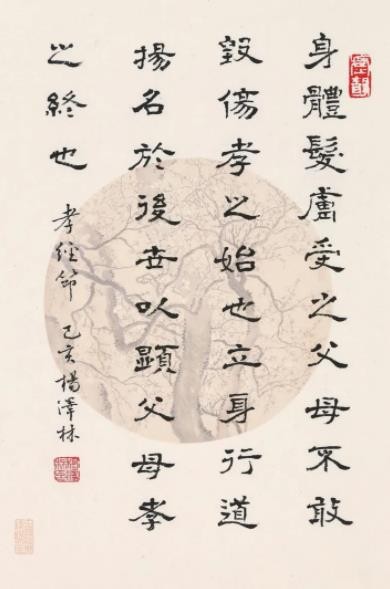 身體髮膚受之父母不敢
毀傷孝之始也立身行道
揚名於後世以顯父母孝
之終也
孝經節 己亥楊澤林